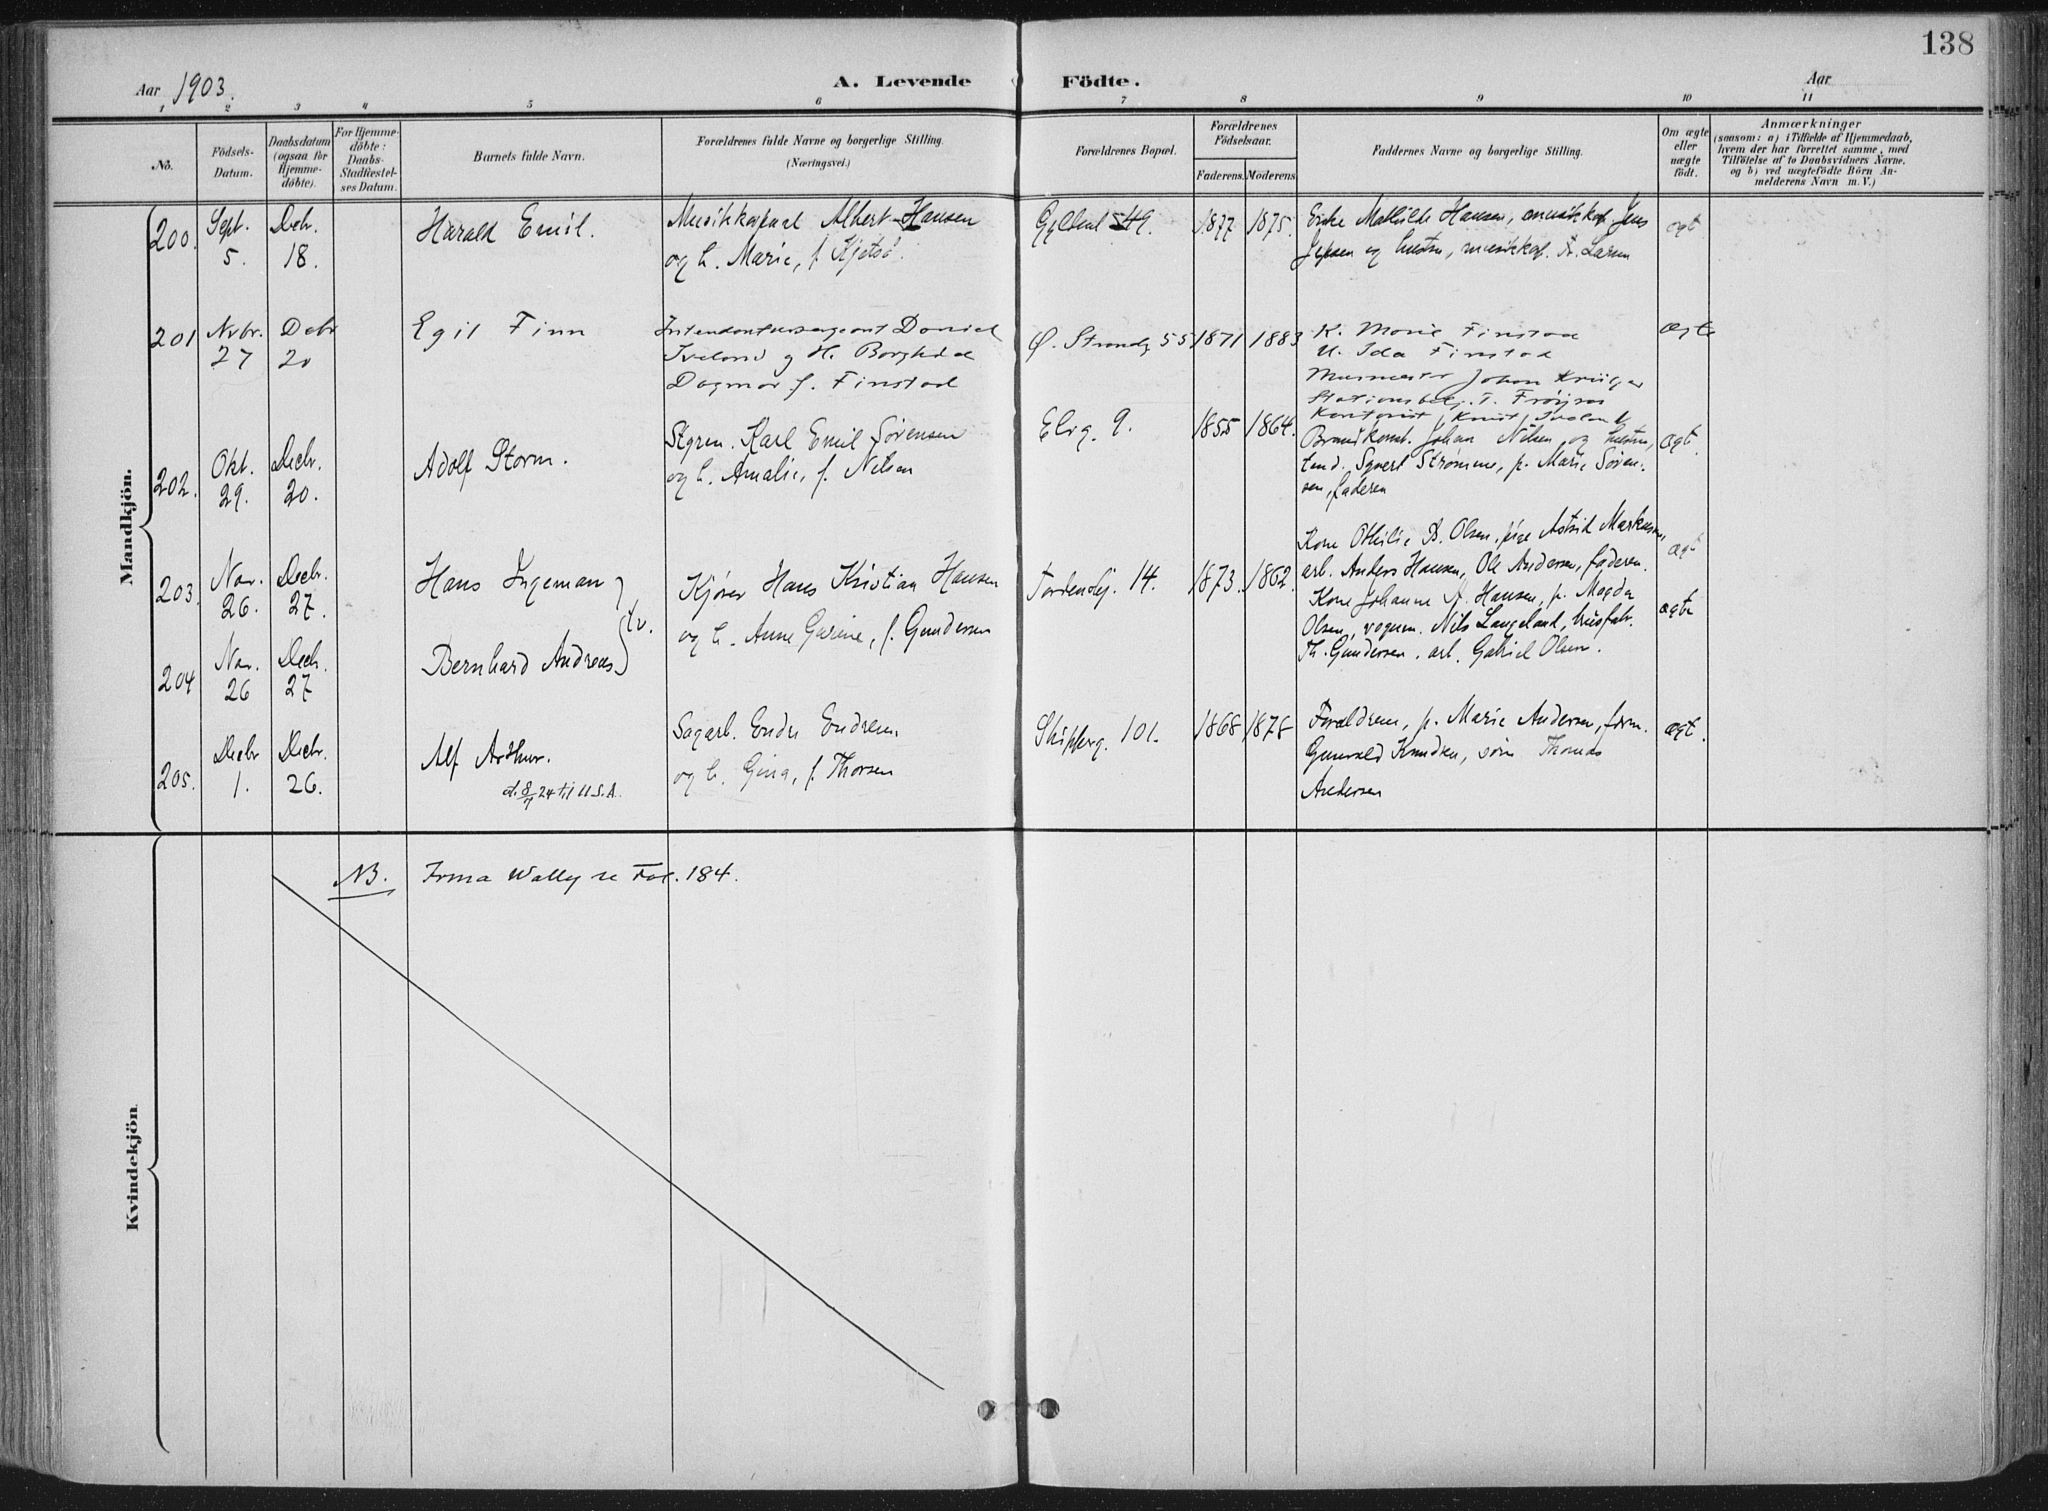 138
Aar 1903.
A. Levende Födte.
Aar
1 2 3 4 5 6 7 8 9 10 11
No.
Födsels-
Datum.
Daabsdatum
(ogsaa for
Hjemme-
döbte).
For Hjemme-
döbte:
Daabs-
Stadfæstel-
ses Datum.
Barnets fulde Navn.
Forældrenes fulde Navne og borgerlige Stilling.
(Næringsvei.)
Forældrenes Bopæl.
Forældrenes
Födselsaar.
Faderens. Moderens.
Faddernes Navne og borgerlige Stilling.
Om ægte
eller
uægte
födt.
Anmærkninger
(saasom: a) i Tilfælde af Hjemmedaab,
hvem der har forrettet samme, med
Tilföielse af to Daabsvidners Navne,
og b) ved uægtefödte Börn An-
melderens Navn m. V.)
Mandkjön.
200. Sept. 5. Decbr. 18.
Harald Emil.
Albert Hansen
og h. Marie, f.
49. 1877 1875.
Enke Mathilde Hansen, Jens
Jepsen og hustru, A. Larsen
ægt
201 Nvbr. 27 Decbr 20
Egil Finn
Intendantursergeant Daniel
Iveland og H. Borghild
Dagmar f. Finstad
Ø. Strandg 55 1871 1883
K. Marie Finstad
U. Ida Finstad
Murmester Johan Krüger
T.
Kontorist Knut Iveland
ægte
202. Okt. 29. Decbr. 20.
Adolf Storm.
Styrm. Karl Emil Sørensen
og h. Amalie, f. Nilsen
Elvg. 9. 1855 1864.
Brandkonst. Johan Nilsen og hustru,
Syvert Strømme, p. Marie Søren-
sen, faderen
ægt.
203. Nov. 26. Decbr. 27.
Hans Ingeman
204 Nov. 26 Decbr. 27
Bernhard Andreas
tv.
Kjører Hans Kristian Hansen
og h. Anne Gurine, f. Gundersen
Tordenskj. 14. 1873. 1862.
Kone Othilie B. Olsen, pige Astrid Markussen,
arb. Anders Hansen, Ole Andersen, faderen.
Kone Johanne A. Hansen, p. Magda
Olsen, vognm. Nils Langeland,
Th. Gundersen, arb. Gabriel Olsen.
ægt
ægte
205. Decbr 1. Decbr. 26.
Alf Arthur.
d. 8/7 24 til U.S.A.
Sagarb. Endre Endresen
og h. Gina, f. Thorsen
Skipperg. 101. 1868 1878
Forældrene, p. Marie Andersen, form.
Gunvald Knudsen, søm. Thomas
Andersen
ægt.
Kvindekjön
NB. Irma Wally se Fol. 184.